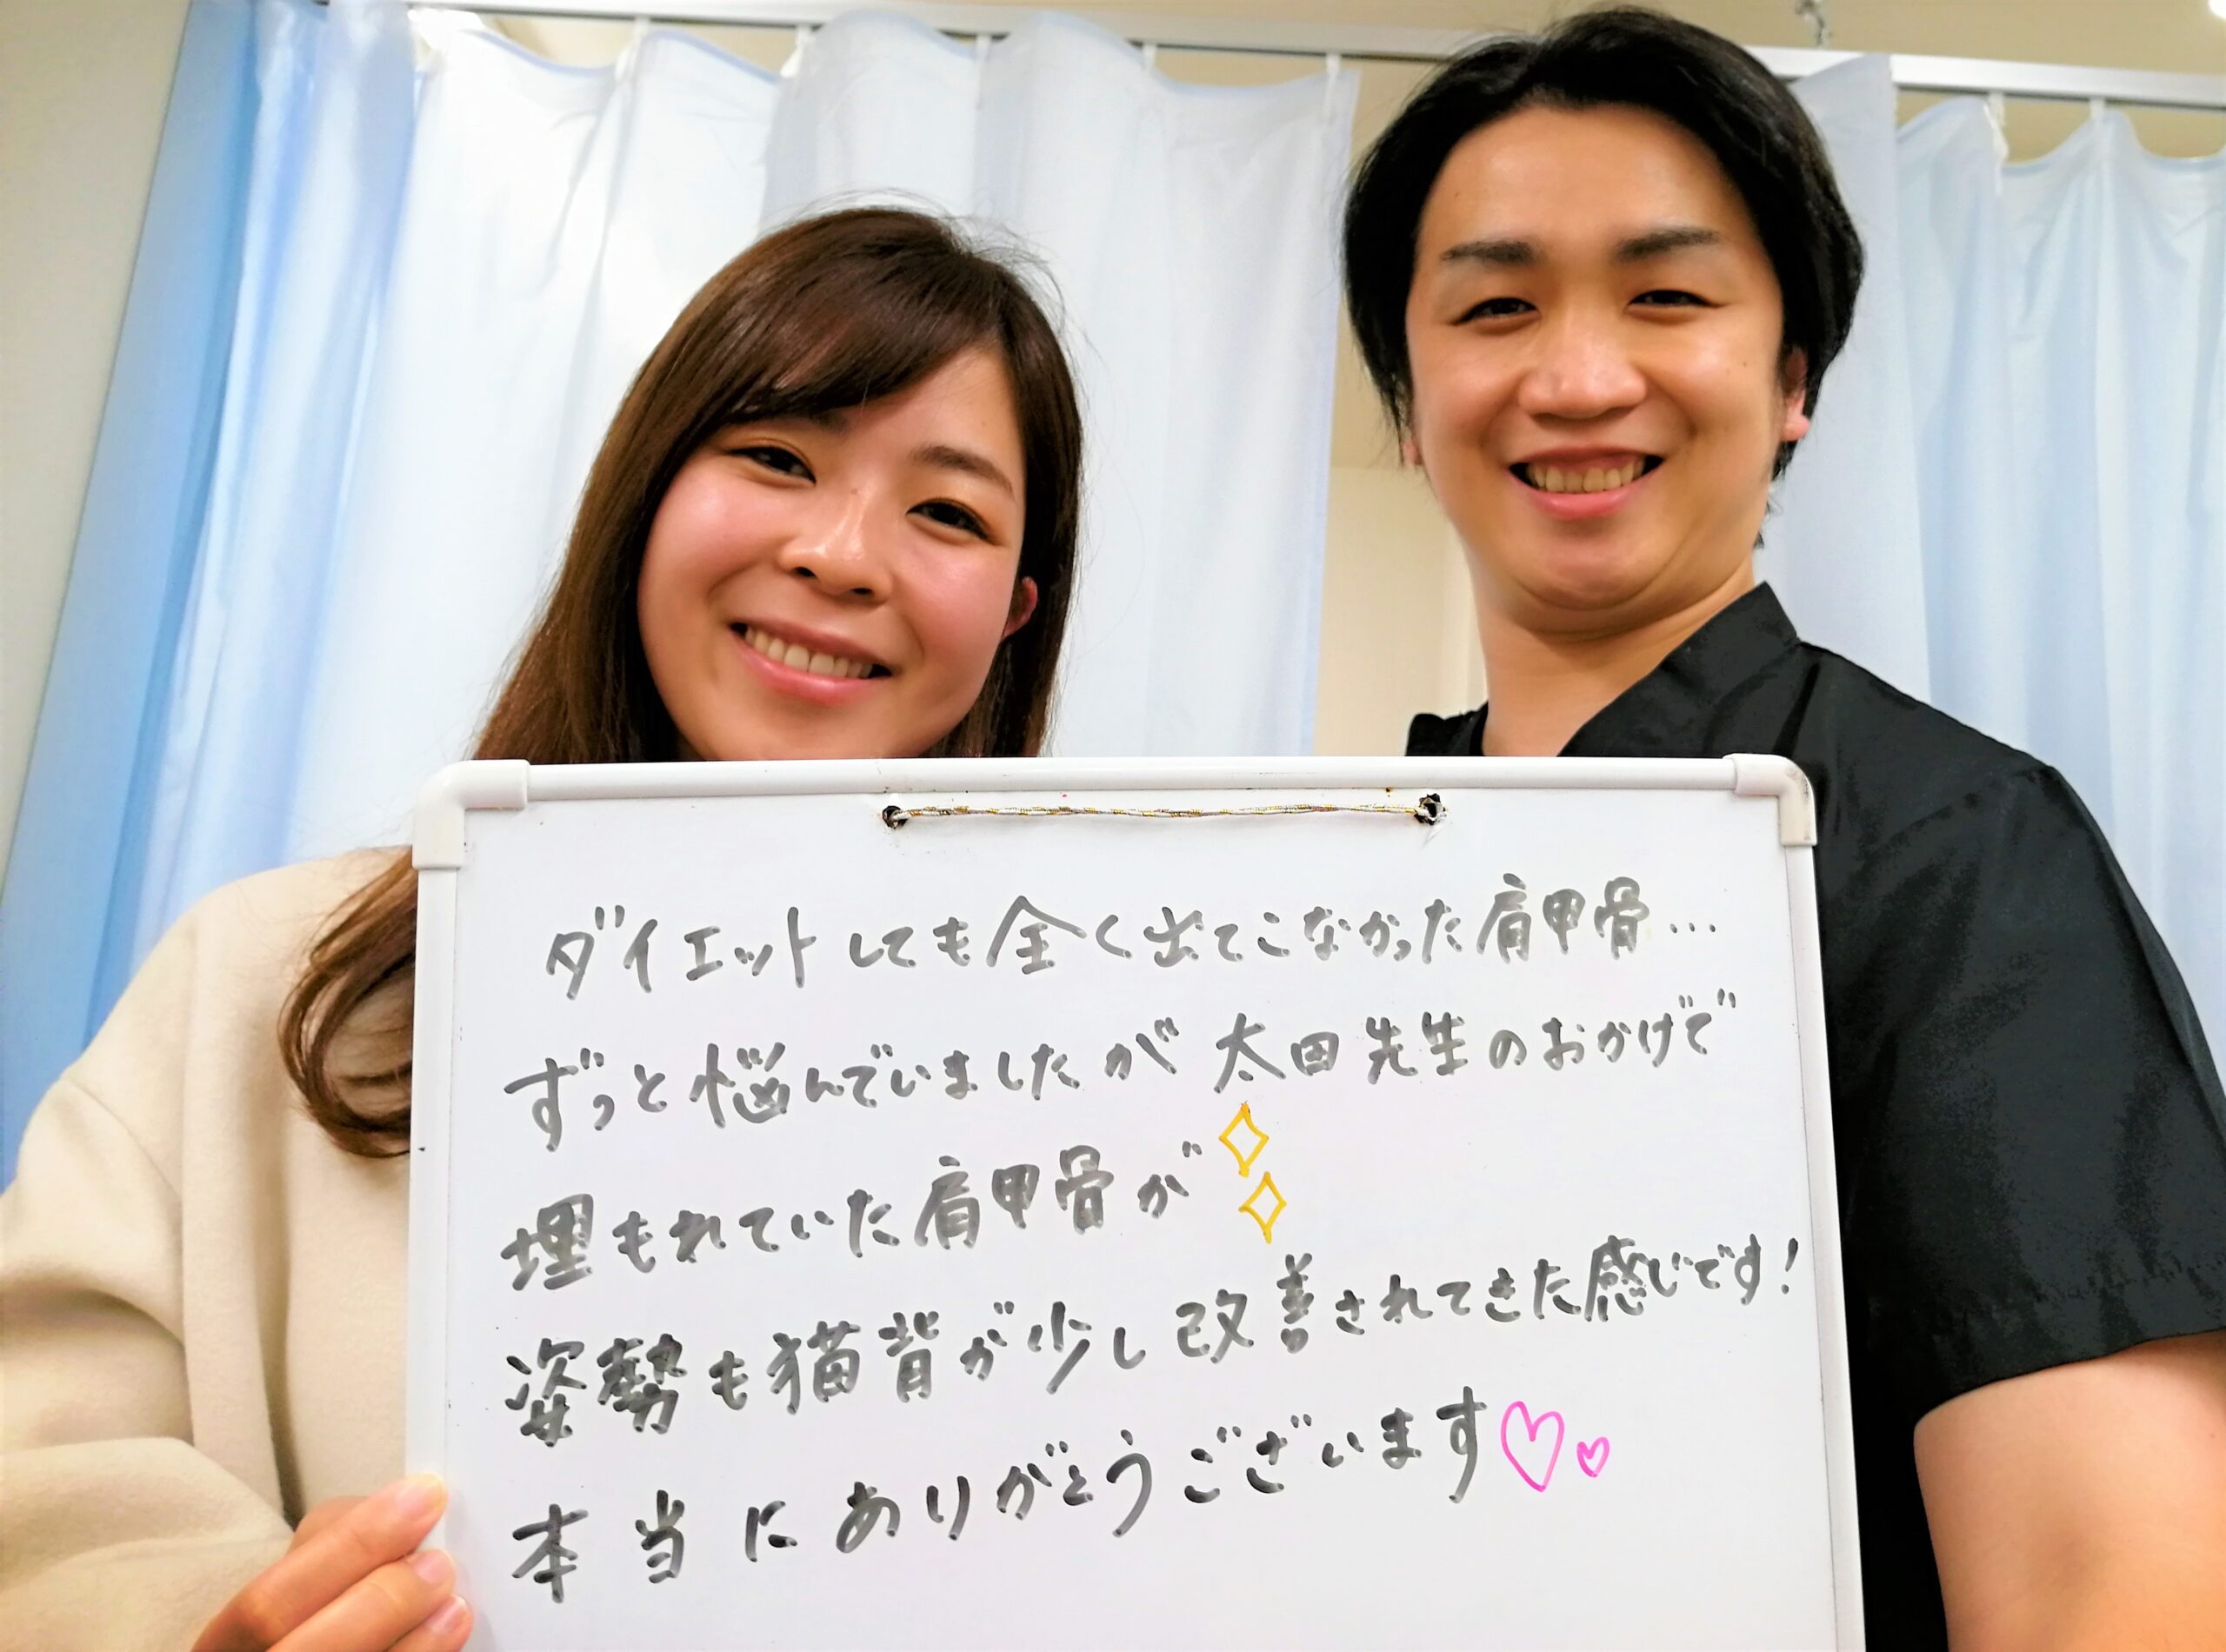 ダイエットしても全く出てこなかった肩甲骨…
ずっと悩んでいましたが太田先生のおかげで
埋もれていた肩甲骨が
姿勢も猫背が少し改善されてきた感じです!
本当にありがとうございます♡♡